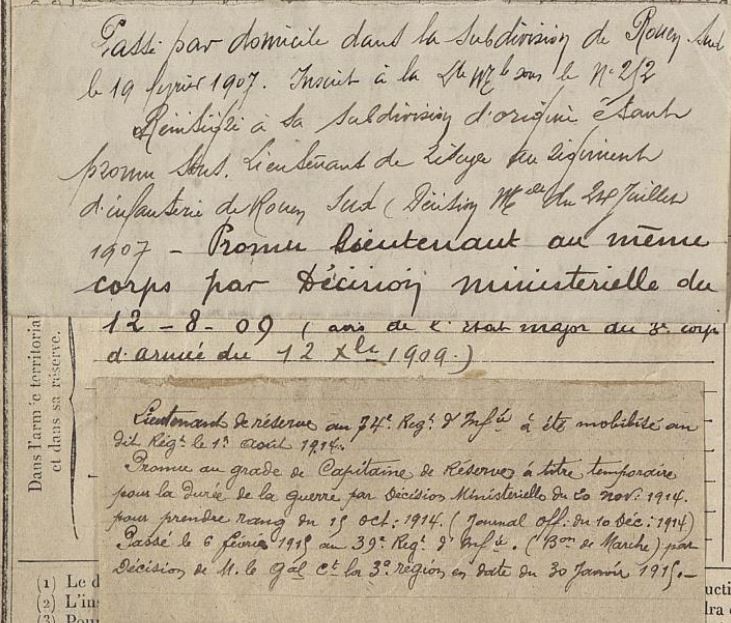 Passé par domicile dans la Subdivision de Rouen Sud
le 19 février 1907. Inscrit à la sous le N° 212
à sa subdivision d'origine étant
promu Sous. Lieutenant de au Régiment
d'infanterie de Rouen Sud (Décision Melle du 24 Juillet
1907 - Promu Lieutenant au même
corps par Décision ministerielle du
12-8-09 (avis de l'état major du 3e corps
d'armée du 12 Xbre 1909.)
Dans l'armée territoriale
et dans sa réserve.
Lieutenant de réserve au 74e Regt d'Infie à été mobilisé au
dit Régt le 1er août 1914.
Promu au grade de Capitaine de Réserve à titre temporaire
pour la Durée de la guerre par Décision Ministérielle du 20 nov: 1914.
pour prendre rang du 15 oct: 1914. (Journal off: du 10 Déc: 1914)
Passé le 6 février 1915 au 39e Regt d'Infie. (Bon de Marche) par
Décision de M. le Gal Ct la 3e région en date du 30 Janvier 1915.-
(1) Le d
(2) L'ins
(3) Pour
ucti
dra